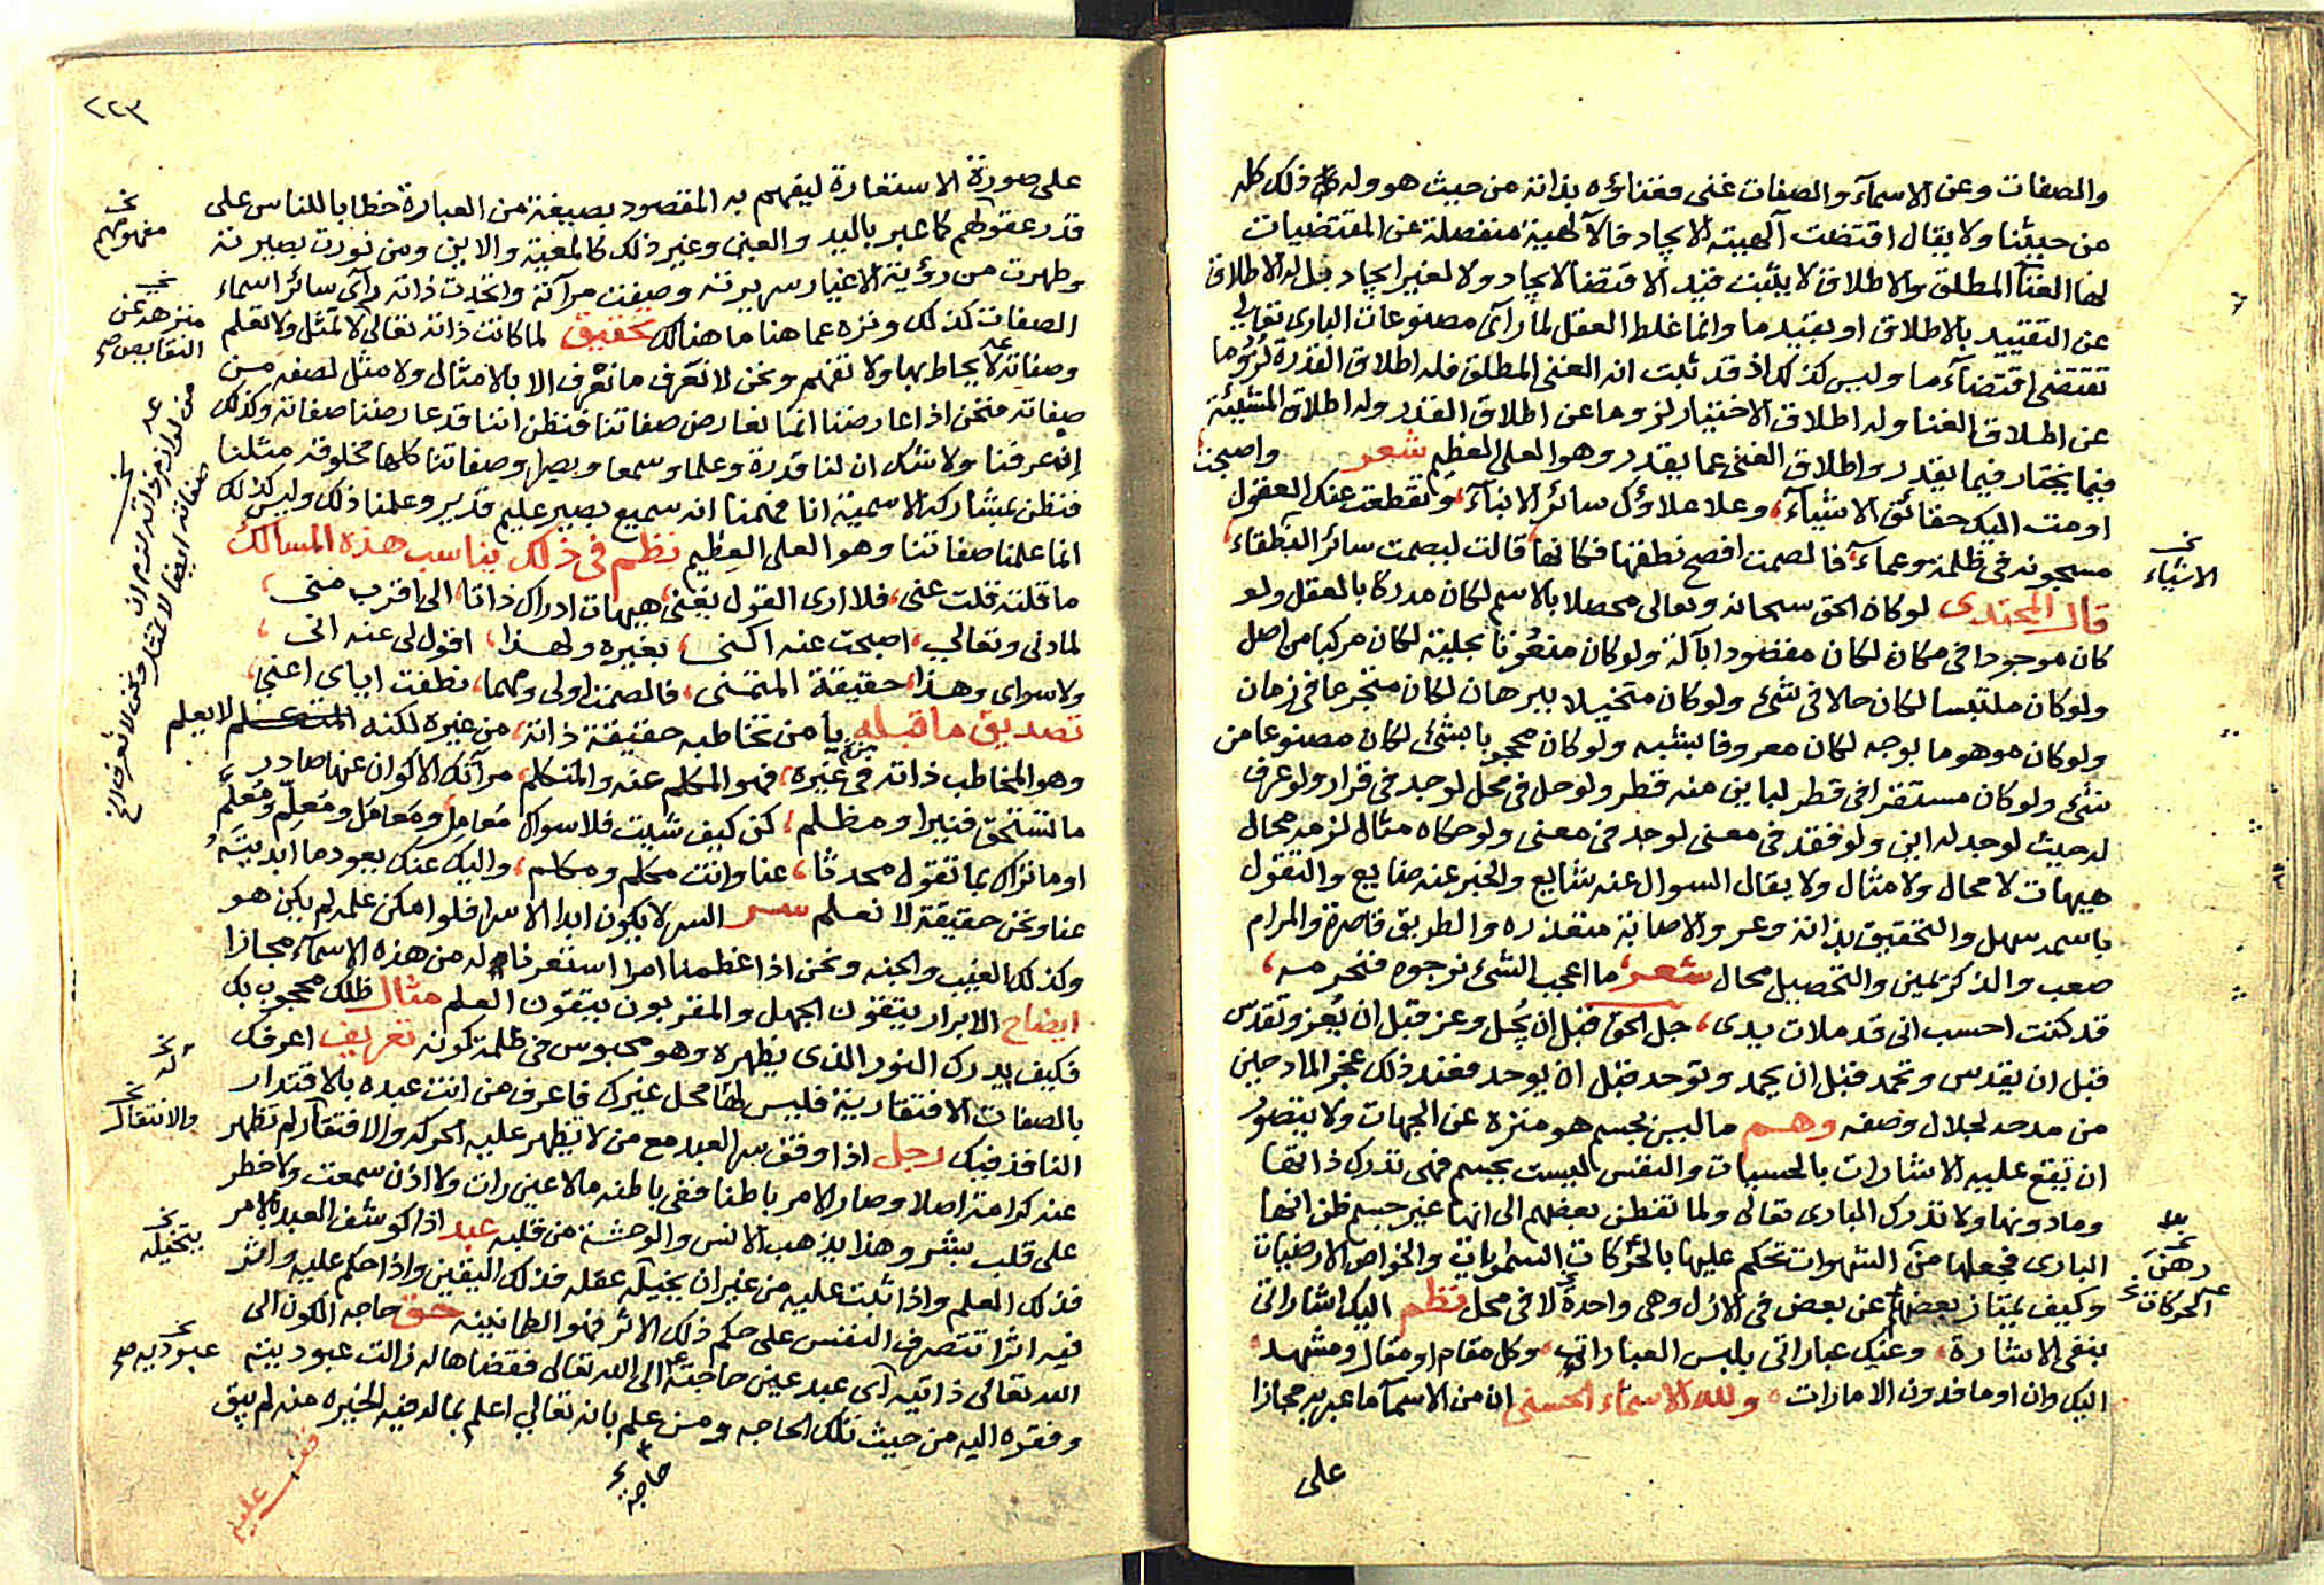 والصفات وعن الاسمآء والصفات غنى فغناؤه بذاته من حيث هو وله كل ذلك كله
من حيثنا ولا يقال اقتضت آلهيته الايجاد فالآلهية منفصلة عن المقتضيات
لها الغنآ المطلق والاطلاق لا يثبت قيد الاقتضا لايجاد ولا لغير ايجاد بل له الاطلاق
عن التقييد بالاطلاق او بقيد ما وانما غلط العقل لما رآى مصنوعات البارى تعالى
تقتضى اقتضآء ما وليس كذلك اذ قد ثبت انه الغنى المطلق فله اطلاق القدرة لزوما
عن اطلاق الغنا وله اطلاق الاختيار لزوما عن اطلاق القدر وله اطلاق المشيئة
فيما يختار فيما يقدر واطلاق الغنى عما يقدر وهو العلى العظيم شعر واصبحت
اومت اليك حقائق الاشيآء، وعلا علاؤك سائر الانبآء، وتقطعت عنك العقول
مسجونه فى ظلمة وعمآء، فالصمت افصح نطقها فكانها قالت ليصمت سائر النطقاء،
قال الجندى لوكان الحق سبحانه وتعالى محصلا بالاسم لكان مدركا بالعقل ولو
كان موجودا فى مكان لكان مقصودا بآلة ولوكان منعوتا بحلية لكان مركبا من اصل
ولوكان ملتبسا لكان حالا فى شىء ولوكان متخيلا ببرهان لكان مخترعا فى زمان
ولوكان موهوما بوجه لكان معروفا بشبه ولوكان محجوبا بشىء لكان مصنوعا من
شىء ولوكان مستقرا فى قطر لباين منه قطر ولوحل فى محل لوجد فى قرار ولو عرف
له حيث لوجد له اين ولو فقد فى معنى لوجد فى معنى ولو حكاه مثال لزمه محال
هيهات لا محال ولا مثال ولا يقال السوال عنه شايع والخبر عنه ضايع والقول
باسمه سهل والتحقيق بذاته وعر والاصابة متعذره والطريق قاصرة والمرام
صعب والذكر يمين والتحصيل محال شعر، ما اعجب الشىء نرجوه فنحرمه،
قد كنت احسب انى قد ملات يدى، جل الحق قبل ان يُجل وعز قبل ان يُعز وتقدّس
قبل ان يقدس وتحمد قبل ان يحمد وتوحد قبل ان يوحد فعند ذلك عجز المادحين
من مدحه لجلال وصفه وهم ما ليس بجسم هو منزه عن الجهات ولا يتصور
ان تقع عليه الاشارات بالحسيات والنفس ليست بجسم فهى تدرك ذاتها
وما دونها ولا تدرك البارى تعالى ولما تفطن بعضهم الى انها غير جسم ظن انها
البارى فجعلها من الشهوات تحكم عليها بالحركات السمٰويات والخواص الارضيات
وكيف يمتاز بعضها عن بعض فى الازل وهى واحدة لا فى محل نظم اليك اشاراتى
بنفى الاشارة، وعنك عباراتى بلبس العباراتى، وكل مقام او مقال ومشهد،
اليك وان اوما فدون الامارات، ولله الاسماء الحسنى ان من الاسمآ ما عبر به مجازا
على
نخ
الاشياء
الحركات
٢٢٣
على صورة الاستعارة ليفهم به المقصود بصيغة من العبارة خطابا للناس على
قدر عقولهم كما عبر باليد والعين وغير ذلك كالمعية والاين ومن نورت بصيرته
وطهرت من رؤية الاغيار سريرته وصفت مرآته واتحدت ذاته رآى سائر اسماء
الصفات كذلك ونزه عما هنا ما هنالك تحقيق لما كانت ذاته تعالى لا تمثل ولا تعلم
وصفاته لا يحاط بها ولا تفهم ونحن لا نعرف ما نعرف الا بالامثال ولا مثل لصفة من
صفاته فنحن اذا عارضنا انما نعارض صفاتنا فنظن اننا قد عارضنا صفاته وكذلك
ان عرفنا ولا شك ان لنا قدرة وعلما وسمعا وبصرا وصفاتنا كلها مخلوقة مثلنا
فنظن بمشاركة الاسمية انا فهمنا انه سميع بصير عليم قدير وعلمنا ذلك وليس كذلك
انما علمنا صفاتنا وهو العلى العظيم نظم فى ذلك يناسب هذه المسالك
ما قلته قلت عنى، فلا ارى القول يغنى، هيهات ادراك ذاتا، الى اقرب منى،
لما دنى وتعالى، اصبحت عنه اكنى، بغيره ولهذا، اقول لى عنه انى،
ولا سواى وهذا، حقيقة المتمنى، فالصمت اولى ومهما، نطقت اياى اعنى،
تصديق ما قبله يا من تخاطبه حقيقة ذاته، من غيره لكنه لا يعلم
وهو المخاطب ذاته فى غيره، فهو المكلم عنه والمتكلم، مرآتك الاكوان عنها صادر
ما تستحق فنيرا ومظلم، كن كيف شيت فلا سواك مُعامِل ومُعامَل ومُعلِّم ومُعلَّم
اوما تراك بما تقول محدثا، عنا وانت مكلم ومكلم، واليك عنك يعود ما ابديتَهُ
عنا ونحن حقيقة لا نعلم سر السر لا يكون ابدا الا سرا فلو امكن علمه لم يكن هو
وكذلك الغيب والجنه ونحن اذا عظمنا امرا استعرنا له من هذه الاسمآء مجازا
ايضاح الابرار يتقون الجهل والمقربون يتقون العلم مثال ظلك محجوب بك
فكيف يدرك النور الذى يظهره وهو محبوس فى ظلمة كونه تعريف اعرفك
بالصفات الافتقارية فليس لها محل غيرك فاعرف من انت عبده بالاقتدار
النافذ فيك رجل اذا وقف سر العبد مع من لا يظهر عليه الحركه والافتقار لم تظهر
عنه كرامة اصلا وصار الامر باطنا ففى باطنه ما لا عين رات ولا اذن سمعت ولا خطر
على قلب بشر وهذا يذهب الانس والوحشة من قلبه عبد اذا كوشف العبد بالامر
فذلك العلم واذا ثبت عليه من غير ان يخيله عقله فذلك اليقين واذا حكم عليه واثر
فيه اثرا تتصرف النفس على حكم ذلك الاثر فهو الطمانينه حق حاجه الكون الى
الله تعالى ذاتيه آى عبد عين حاجته الى الله تعالى فقضاها له زالت عبوديته
وفقره اليه من حيث تلك الحاجه ومن علم بانه تعالى اعلم بما له فيه الخيره منه لم يبق
نخ
مفهومهم
نخ
منزهه عن
النقايص صح
من لوازم ذاته لزم ان
صفاته ايضا لا تمثل ونحن لا نعرف الخ
نخ
والانتقال
نخ
يتخيله
نخ
عبوديه صح
حاجه